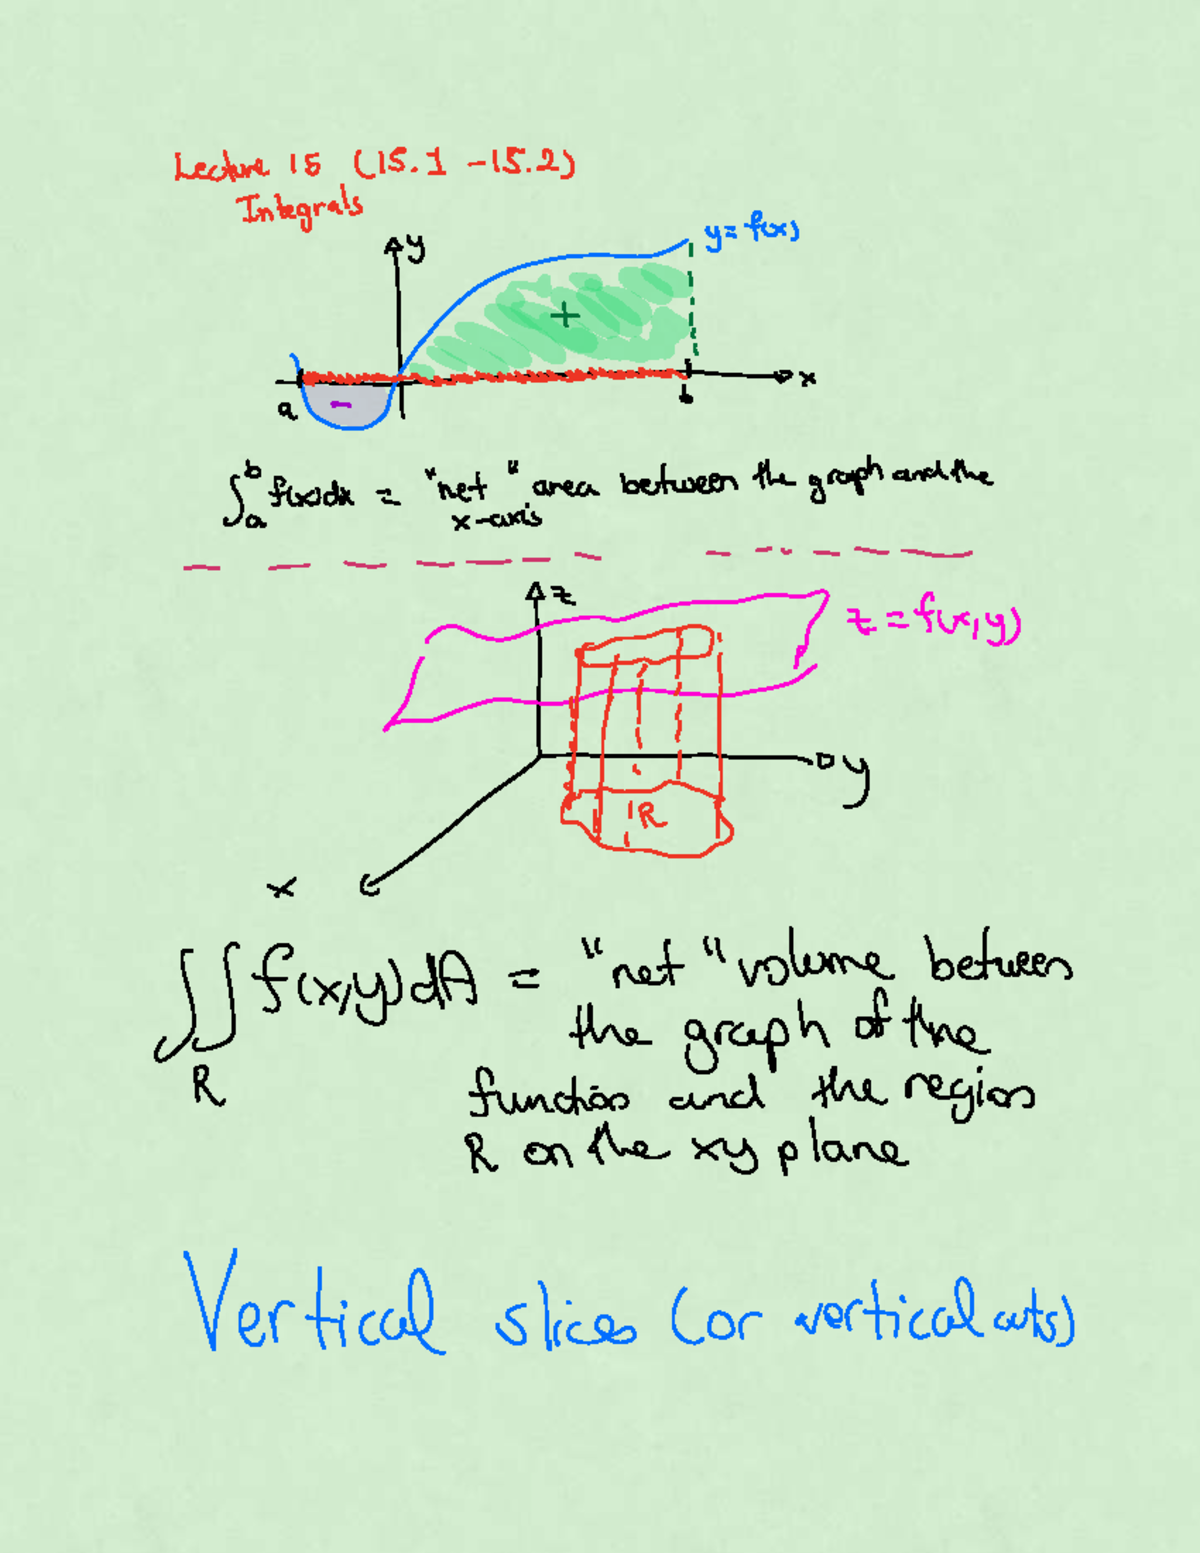 Lecture 15 (15.1 - 15.2)
Integrals
y
y = f(x)
+
-
a
b
x
∫_a^b f(x)dx = "net" area between the graph and the
x-axis
z
z = f(x,y)
y
R
x
∬_R f(x,y)dA = "net" volume between
the graph of the
function and the region
R on the xy plane
Vertical slices (or vertical cuts)